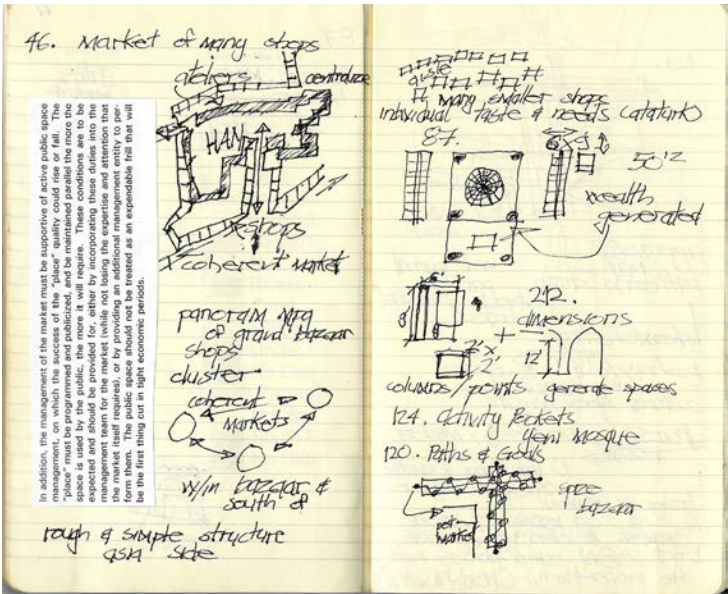 46. Market of Many shops
ateliers
centralize
HAN
shops
coherent market
In addition, the management of the market must be supportive of active public space
management, on which the success of the "place" quality could rise or fall. The
"place" must be programmed and publicized, and be maintained parallel the more the
space is used by the public, the more it will require. These conditions are to be
expected and should be provided for, either by incorporating these duties into the
management team for the market (while not losing the expertise and attention that
the market itself requires), or by providing an additional management entity to per-
form them. The public space should not be treated as an expendable frill that will
be the first thing cut in tight economic periods.
panoram
of grand bazaar
shops
cluster
coherent
Markets
w/in bazaar &
south of
rough & simple structure
asia side
aisle
many smaller shops
individual taste & needs (ataturk)
87.
6x9
50'²
wealth
generated
6'
212.
dimensions
2'x
2'
12'
columns/points generate spaces
124. Activity Pockets
Yeni Mosque
120. Paths & Goals
spize
bazaar
pet
market